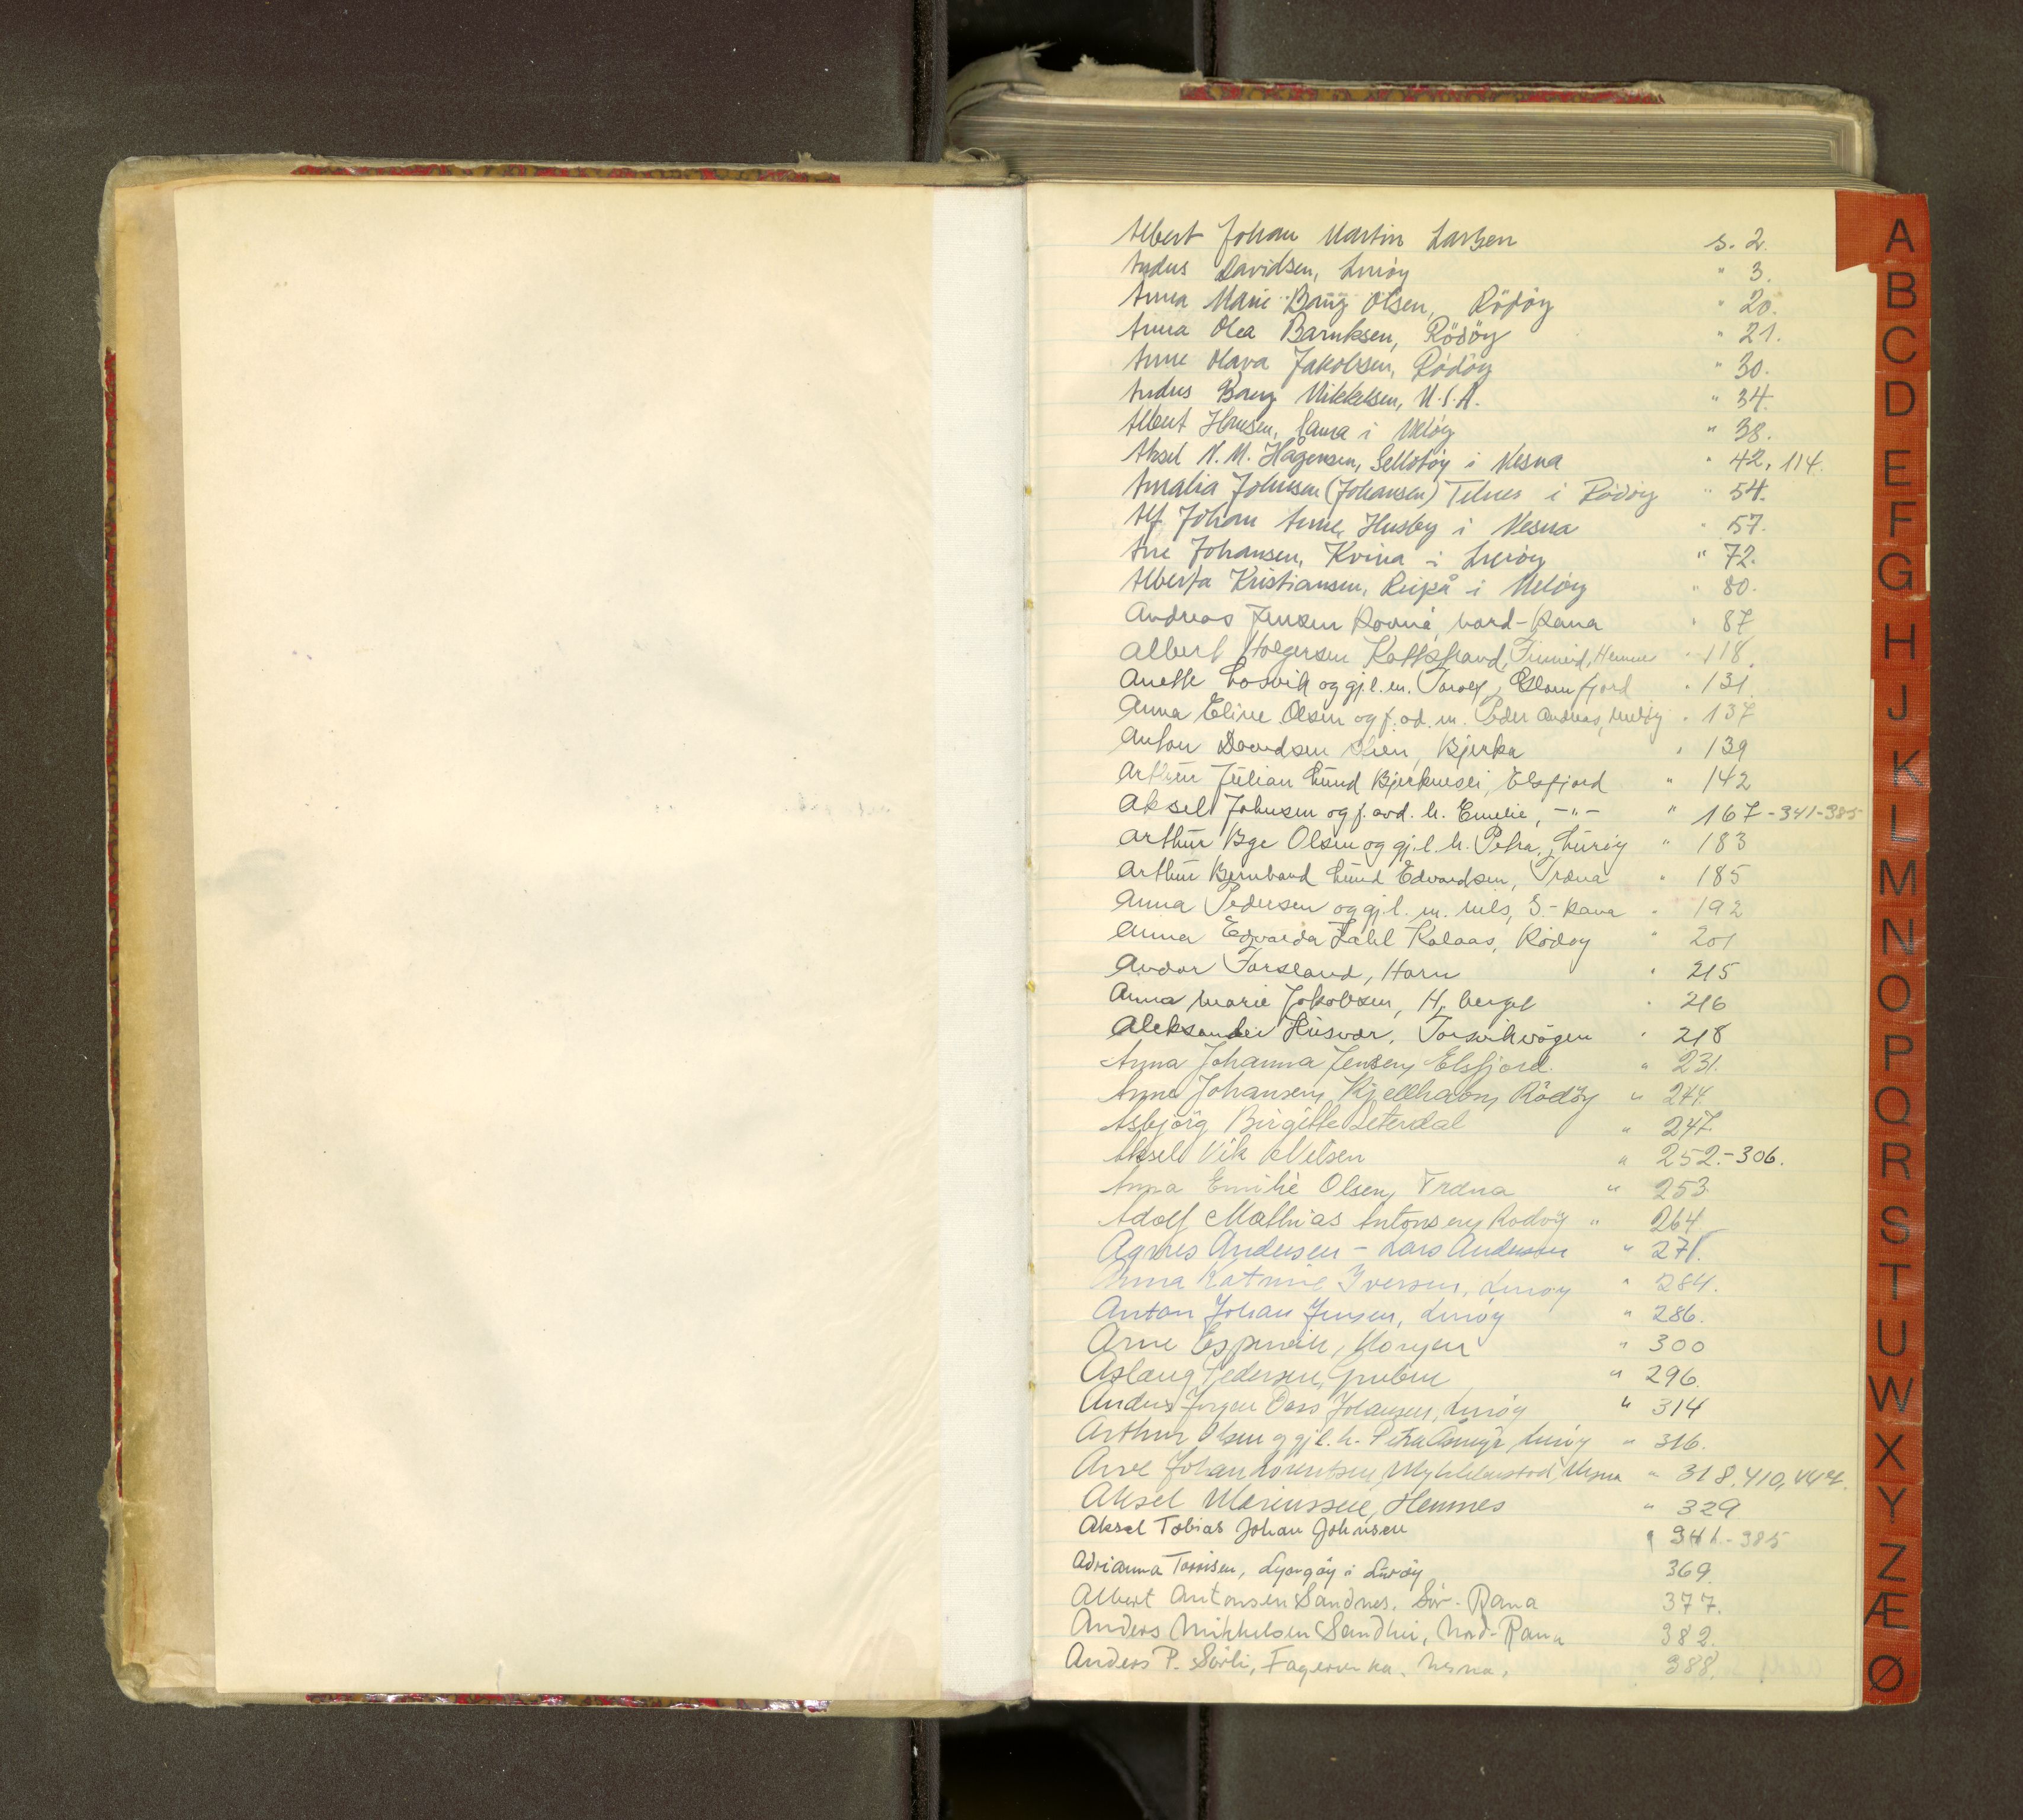 Albert Johan Martin Larsen s. 2.
Anders Davidsen, Lurøy " 3.
Anna Marie Bang Olsen, Rödöy " 20.
Anna Olea Barniksen, Rödöy " 21.
Anne Olava Jakobsen, Rödöy " 30.
Anders Bang Mikkelsen, U.S.A. " 34.
Albert Hansen, i Meløy " 38.
Aksel N. M. Hågensen, i Nesna " 42, 114.
Amalia Johnsen (Johansen) Telnes i Rödöy " 54.
Alf Johan Arne, Husby i Nesna " 57.
Are Johansen, Kvina i Lurøy " 72.
Alberta Kristiansen, Reipå i Meløy " 80.
Andreas Jensen Rovnå, Nord-Rana " 87
Albert Holgersen Kattstrand, Finneid, Hemnes " 118.
Anette Losvik og gjl. m. Torolf, Glomfjord " 131
Anna Eline Olsen og f. ad. m. Peder Andreas, Meløy " 137
Anton Davidsen Lien, Bjerka " 139
Arthur Julian Lund Bjerknesli, Elsfjord " 142
Aksel Johnsen og f. avd. h. Emelie, -"- " 167-341-385
Arthur Bge Olsen og gj.l. h. Petra, Lurøy " 183
Arthur Bernhard Lund Edvardsen, Træna " 185
Anna Pedersen og gjl. m. Nils, S.-Rana " 192
Anna Edvarda Zahl Kalaas, Rödöy " 201
Andor Forsland, Horn " 215
Anna Marie Jakobsen, H, berget " 216
Aleksander Husvær, Torsvikvågen " 218
Anna Johanna Jensen, Elsfjord. " 231.
Anna Johansen, Kjellhavn, Rödöy " 244.
Asbjörg Birgitte Seterdal " 247.
Aksel Vik Nilsen " 252.-306.
Anna Emilie Olsen, Træna " 253
Adolf Mathias Antonsen, Rodöy " 264.
Agnes Andersen - Lars Andersen " 271.
Anna Katrine Iversen, Lurøy " 284.
Anton Johan Jensen, Lurøy " 286.
Arne Espenvik, Korgen " 300
Aslaug Pedersen, Gruben " 296.
Anders Jörgen Dass Johansen, Lurøy " 314
Arthur Olsen og gjl. h. Petra, Lurøy " 316.
Arne Johan Lorentsen, Myklebustad, Nesna " 318, 410, 447.
Aksel Mariussen, Hemnes " 329
Aksel Tobias Johan Johnsen " 341-385
Adrianna Tonnisen, i Lurøy 369
Albert Antonsen Sandnes. Sör-Rana 377.
Anders Mikkelsen Sandhei, Nord-Rana 382.
Anders P. Sörli, Fagervika. Nesna. 388.
A
B
C
D
E
F
G
H
J
K
L
M
N
O
P
Q
R
S
T
U
W
X
Y
Z
Æ
Ø